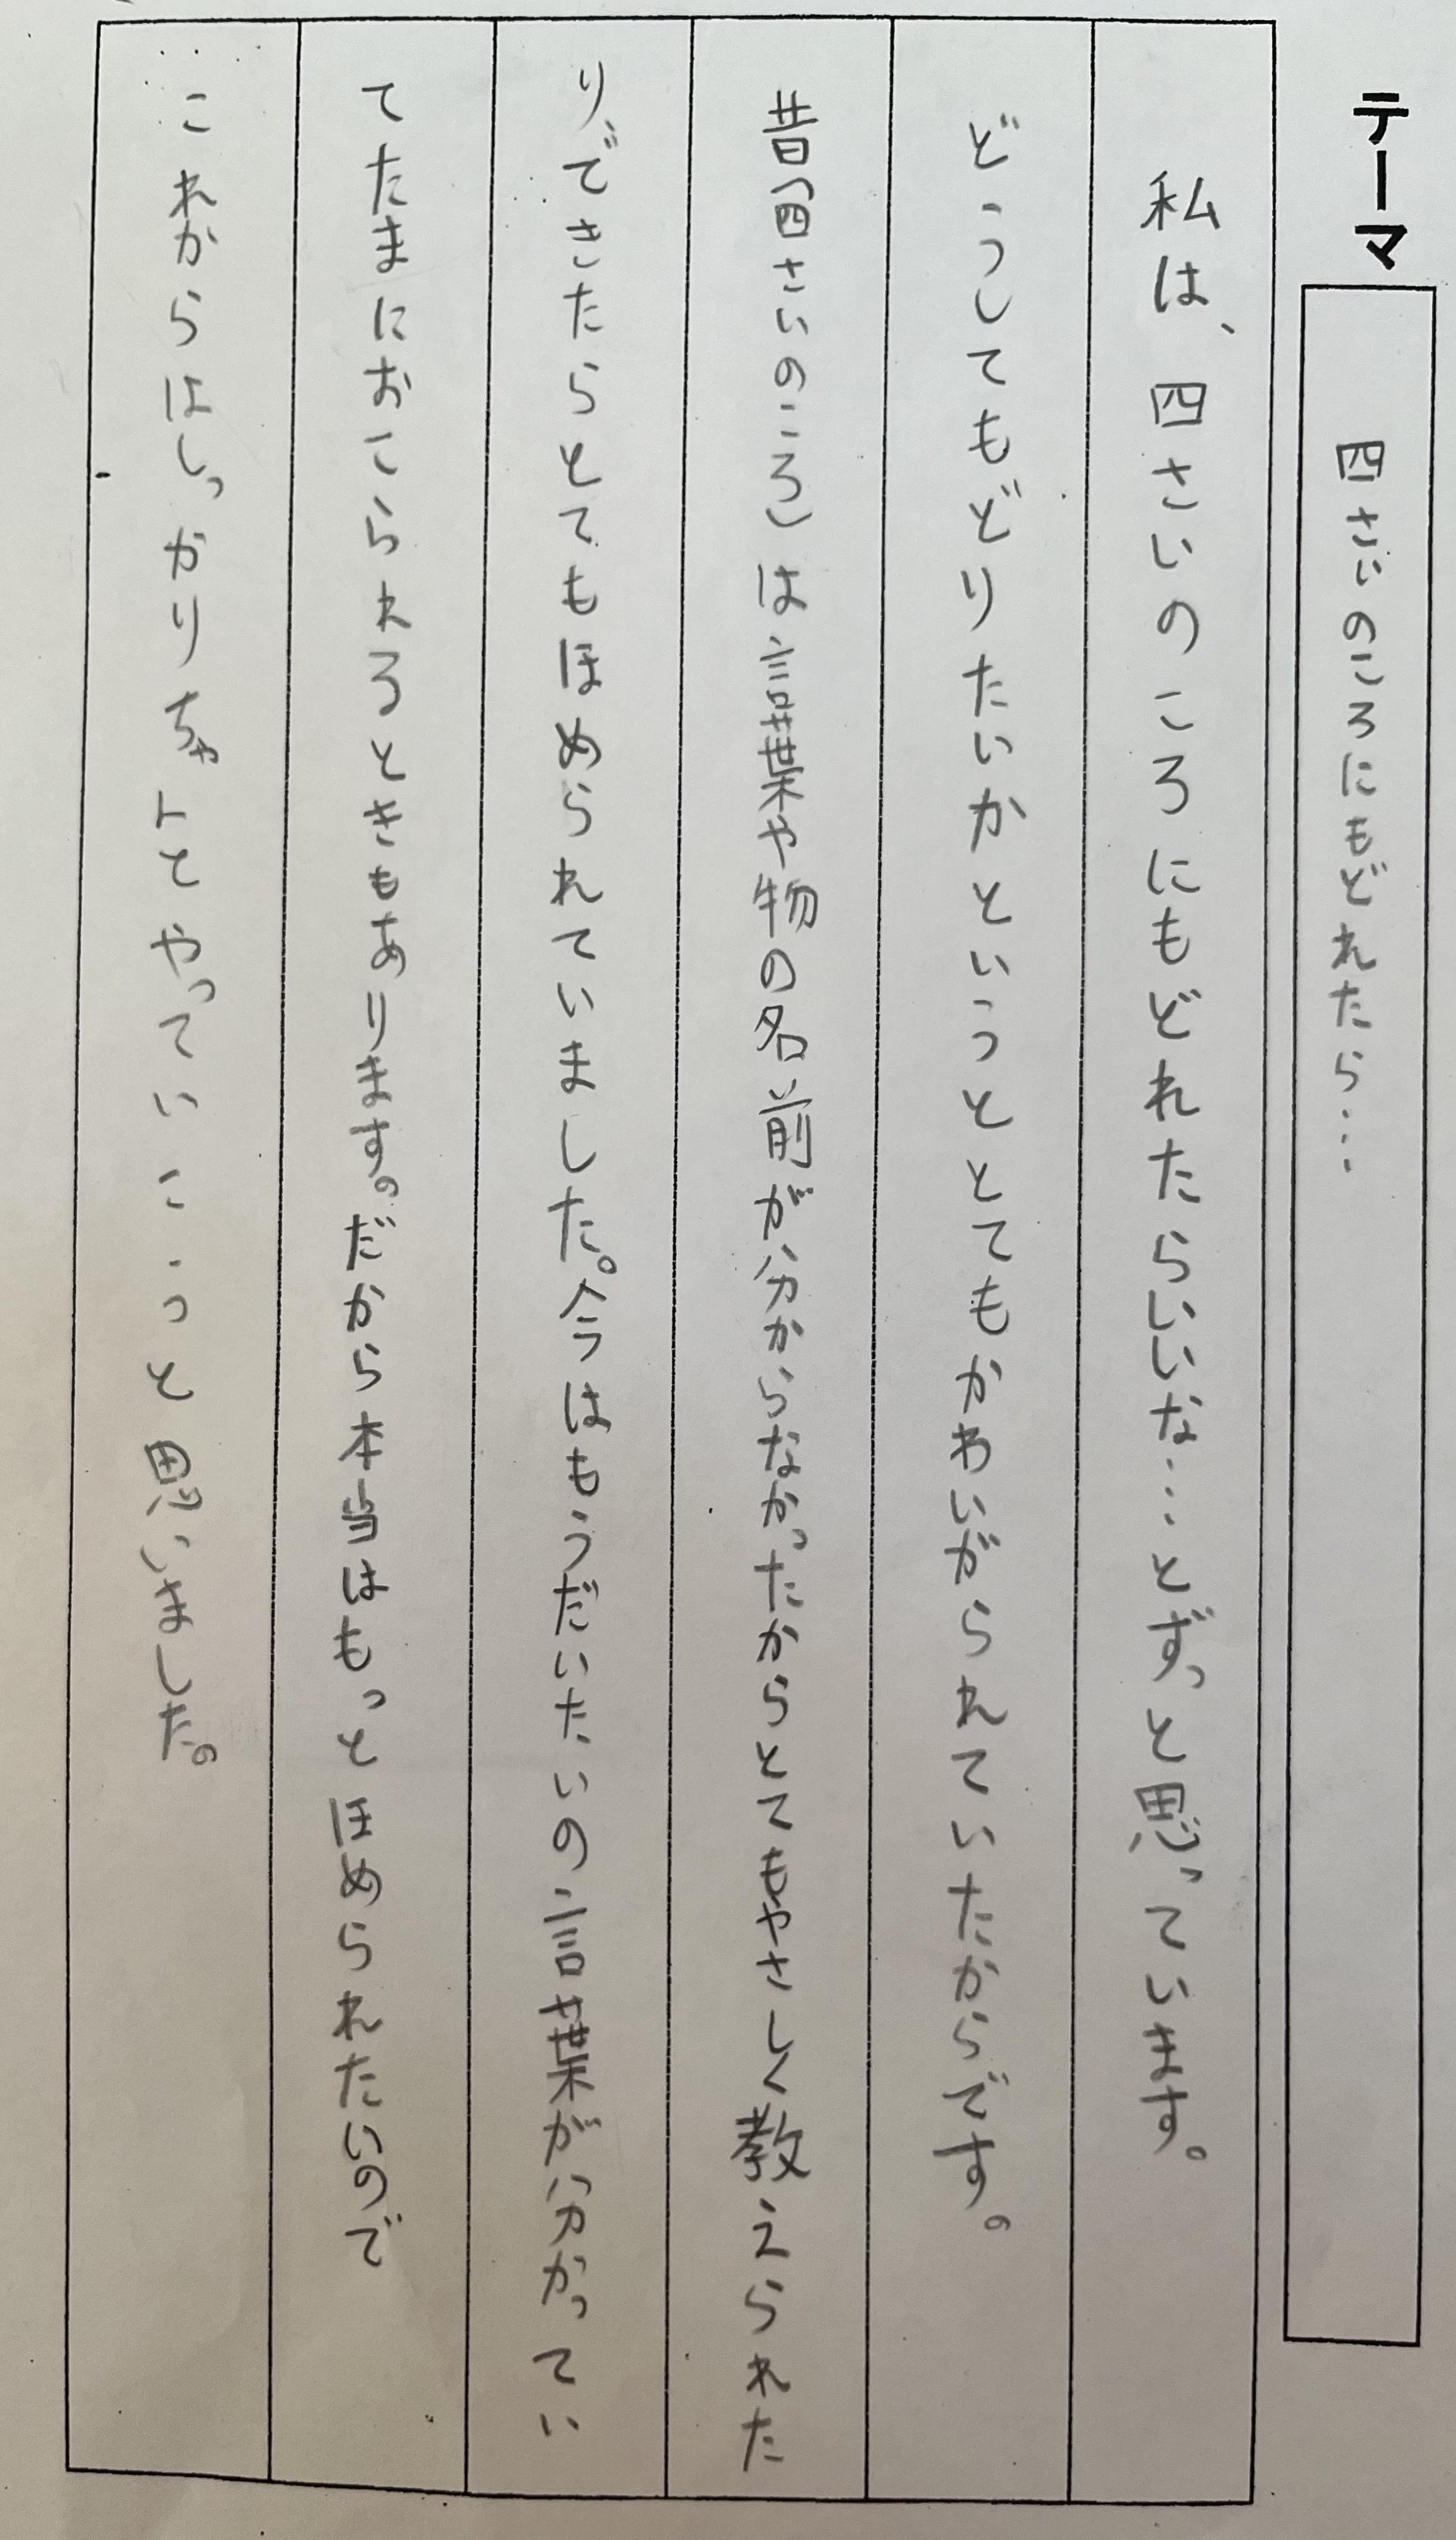 テーマ
四さいのころにもどれたら…
私は、四さいのころにもどれたらいいな…とずっと思っています。
どうしてもどりたいかというととてもかわいがられていたからです。
昔(四さいのころ)は言葉や物の名前が分からなかったからとてもやさしく教えられた
り、できたらとてもほめられていました。今はもうだいたいの言葉が分かってい
てたまにおこられるときもあります。だから本当はもっとほめられたいので
これからはしっかりちゃんとやっていこうと思いました。